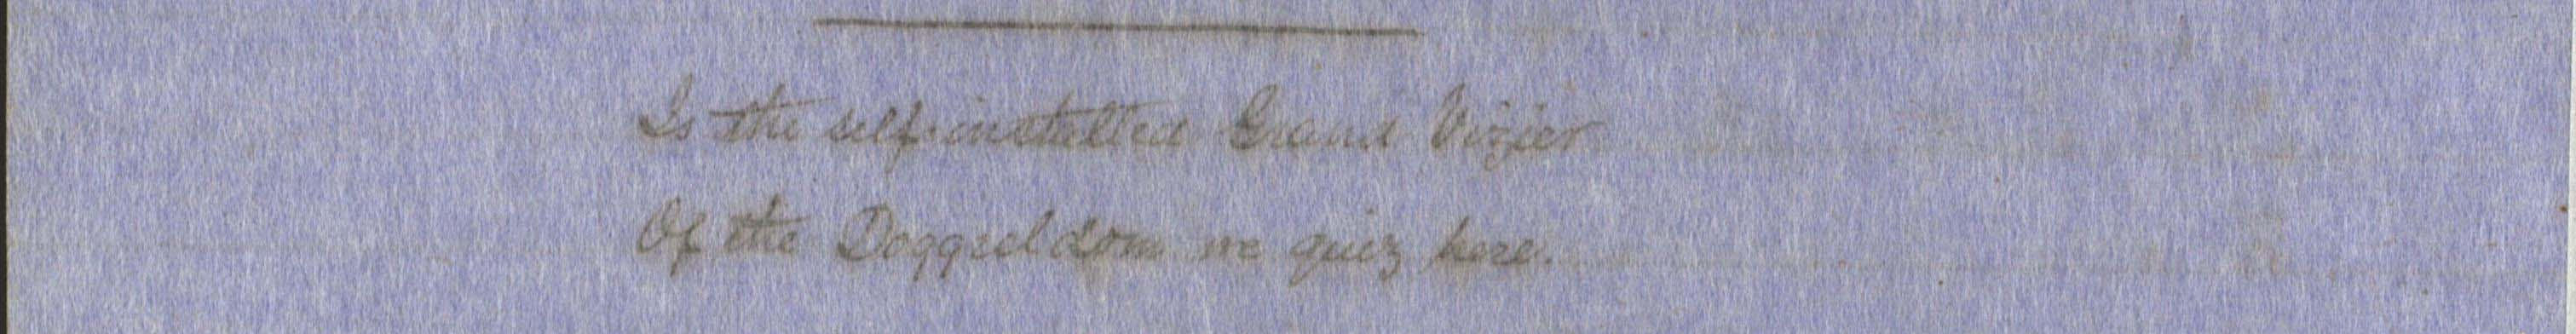 Is the self-installed Grand Vizier
Of the Doggreldom we quiz here.